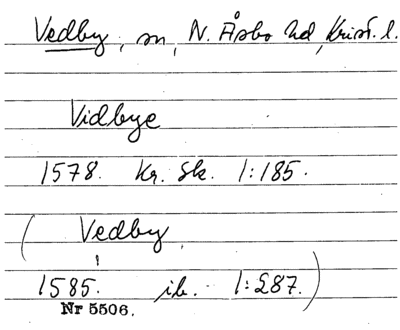 Vedby, sn, N. Åsbo hd, Krist. l.
Vidbye
1578. Kr. Sk. 1:185.
(Vedby,
1585. ib. 1:287.)
Nr 5506.